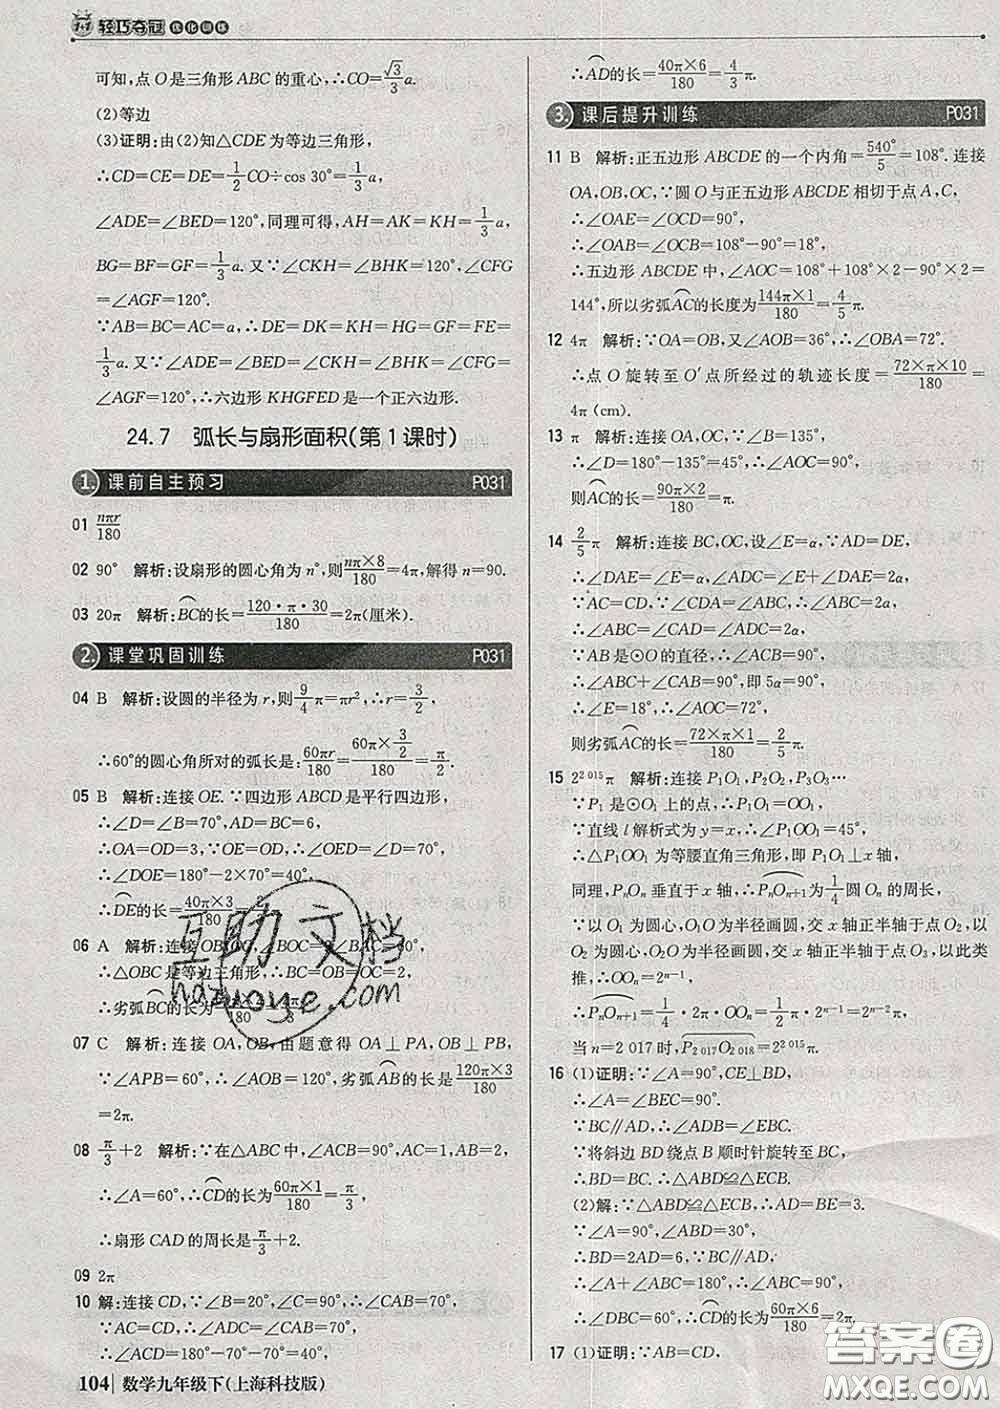 1+1 轻巧夺冠 优化训练
可知,点O是三角形ABC的重心,∴CO=√3/3 a.
(2)等边
(3)证明:由(2)知△CDE为等边三角形,
∴CD=CE=DE=1/2 CO÷cos 30°=1/3 a,
∠ADE=∠BED=120°,同理可得,AH=AK=KH=1/3 a,
BG=BF=GF=1/3 a.又∵∠CKH=∠BHK=120°,∠CFG
=∠AGF=120°.
∵AB=BC=AC=a,∴DE=DK=KH=HG=GF=FE=
1/3 a.又∵∠ADE=∠BED=∠CKH=∠BHK=∠CFG
=∠AGF=120°,∴六边形KHGFED是一个正六边形.
24.7 弧长与扇形面积(第1课时)
1. 课前自主预习 P031
01 nπr/180
02 90° 解析:设扇形的圆心角为n°,则nπ×8/180=4π,解得n=90.
03 20π 解析:⌒BC的长=120·π·30/180=2π(厘米).
2. 课堂巩固训练 P031
04 B 解析:设圆的半径为r,则9/4 π=πr²,∴r=3/2,
∴60°的圆心角所对的弧长是:60πr/180=60π×3/2/180=π/2.
05 B 解析:连接OE.∵四边形ABCD是平行四边形,
∴∠D=∠B=70°,AD=BC=6,
∴OA=OD=3,∵OE=OD,∴∠OED=∠D=70°,
∴∠DOE=180°-2×70°=40°,
∴⌒DE的长=40π×3/180=2π/3.
06 A 解析:连接OB,OC,∠BOC=∠BAC=60°,
∴△OBC是等边三角形,
∴劣弧⌒BC的长为
07 C 解析:连接OA,OB,由题意得OA⊥PA,OB⊥PB,
∵∠APB=60°,∴∠AOB=120°,劣弧⌒AB的长是120π×3/180
=2π.
08 π/3+2 解析:∵在△ABC中,∠ACB=90°,AC=1,AB=2,
∴∠A=60°,∴⌒CD的长为60π×1/180=π/3,
∴扇形CAD的周长是π/3+2.
09 2π
10 解:连接CD,∵∠B=20°,∠C=90°,∴∠CAB=70°,
∵AC=CD,∴∠ADC=∠CAB=70°,
∴∠ACD=180°-70°-70°=40°,
104 数学九年级下(上海科技版)
∴⌒AD的长=40π×6/180=4/3 π.
3. 课后提升训练 P031
11 B 解析:正五边形ABCDE的一个内角=540°/5=108°.连接
OA,OB,OC,∵圆O与正五边形ABCDE相切于点A,C,
∴∠OAE=∠OCD=90°,
∴∠OAB=∠OCB=108°-90°=18°,
∴五边形ABCDE中,∠AOC=108°+108°×2-90°×2=
144°,所以劣弧⌒AC的长度为144π×1/180=4/5 π.
12 4π 解析:∵OA=OB,又∠AOB=36°,∴∠OBA=72°.
∴点O旋转至O′点所经过的轨迹长度=72×π×10/180=
4π(cm).
13 π 解析:连接OA,OC,∵∠B=135°,
∴∠D=180°-135°=45°,∴∠AOC=90°,
则⌒AC的长=90π×2/180=π.
14 2/5 π 解析:连接BC,OC,设∠E=α,∵AD=DE,
∴∠DAE=∠E=α,∴∠ADC=∠E+∠DAE=2α,
∵AC=CD,∴∠CDA=∠ABC,∴∠ABC=2α,
∴∠ABC=∠CAD=∠ADC=2α,
∵AB是⊙O的直径,∴∠ACB=90°,
∴∠ABC+∠CAB=90°,即5α=90°,
∴∠E=18°,∴∠AOC=72°,
则劣弧⌒AC的长=72×π×1/180=2/5 π.
15 2^2 015 π 解析:连接P₁O₁,P₂O₂,P₃O₃…
∵P₁是⊙O₁上的点,∴P₁O₁=OO₁,
∵直线l解析式为y=x,∴∠P₁OO₁=45°,
∴△P₁OO₁为等腰直角三角形,即P₁O₁⊥x轴,
同理,PₙOₙ垂直于x轴,∴⌒PₙOₙ₊₁为1/4圆Oₙ的周长,
∵以O₁为圆心,O₁O为半径画圆,交x轴正半轴于点O₂,以
O₂为圆心,O₂O为半径画圆,交x轴正半轴于点O₃,以此类
推,∴OOₙ=2ⁿ⁻¹,
∴⌒PₙOₙ₊₁=1/4·2π·OOₙ=1/2 π·2ⁿ⁻¹=2ⁿ⁻²π,
当n=2 017时,⌒P₂ ₀₁₇O₂ ₀₁₈=2^2 015 π.
16 (1)证明:∵∠A=90°,CE⊥BD,
∴∠A=∠BEC=90°.
∵BC∥AD,∴∠ADB=∠EBC.
∵将斜边BD绕点B顺时针旋转至BC,
∴BD=BC.∴△ABD≌△ECB.
(2)解:∵△ABD≌△ECB,∴AD=BE=3.
∵∠A=90°,∠ABD=30°,
∴BD=2AD=6,∵BC∥AD,
∴∠A+∠ABC=180°,∴∠ABC=90°,
∴∠DBC=60°,∴⌒CD的长=60π×6/180=2π.
17 (1)证明:∵AB=CD,
互助文档
hdzuoye.com
答案圈
MXQE.COM